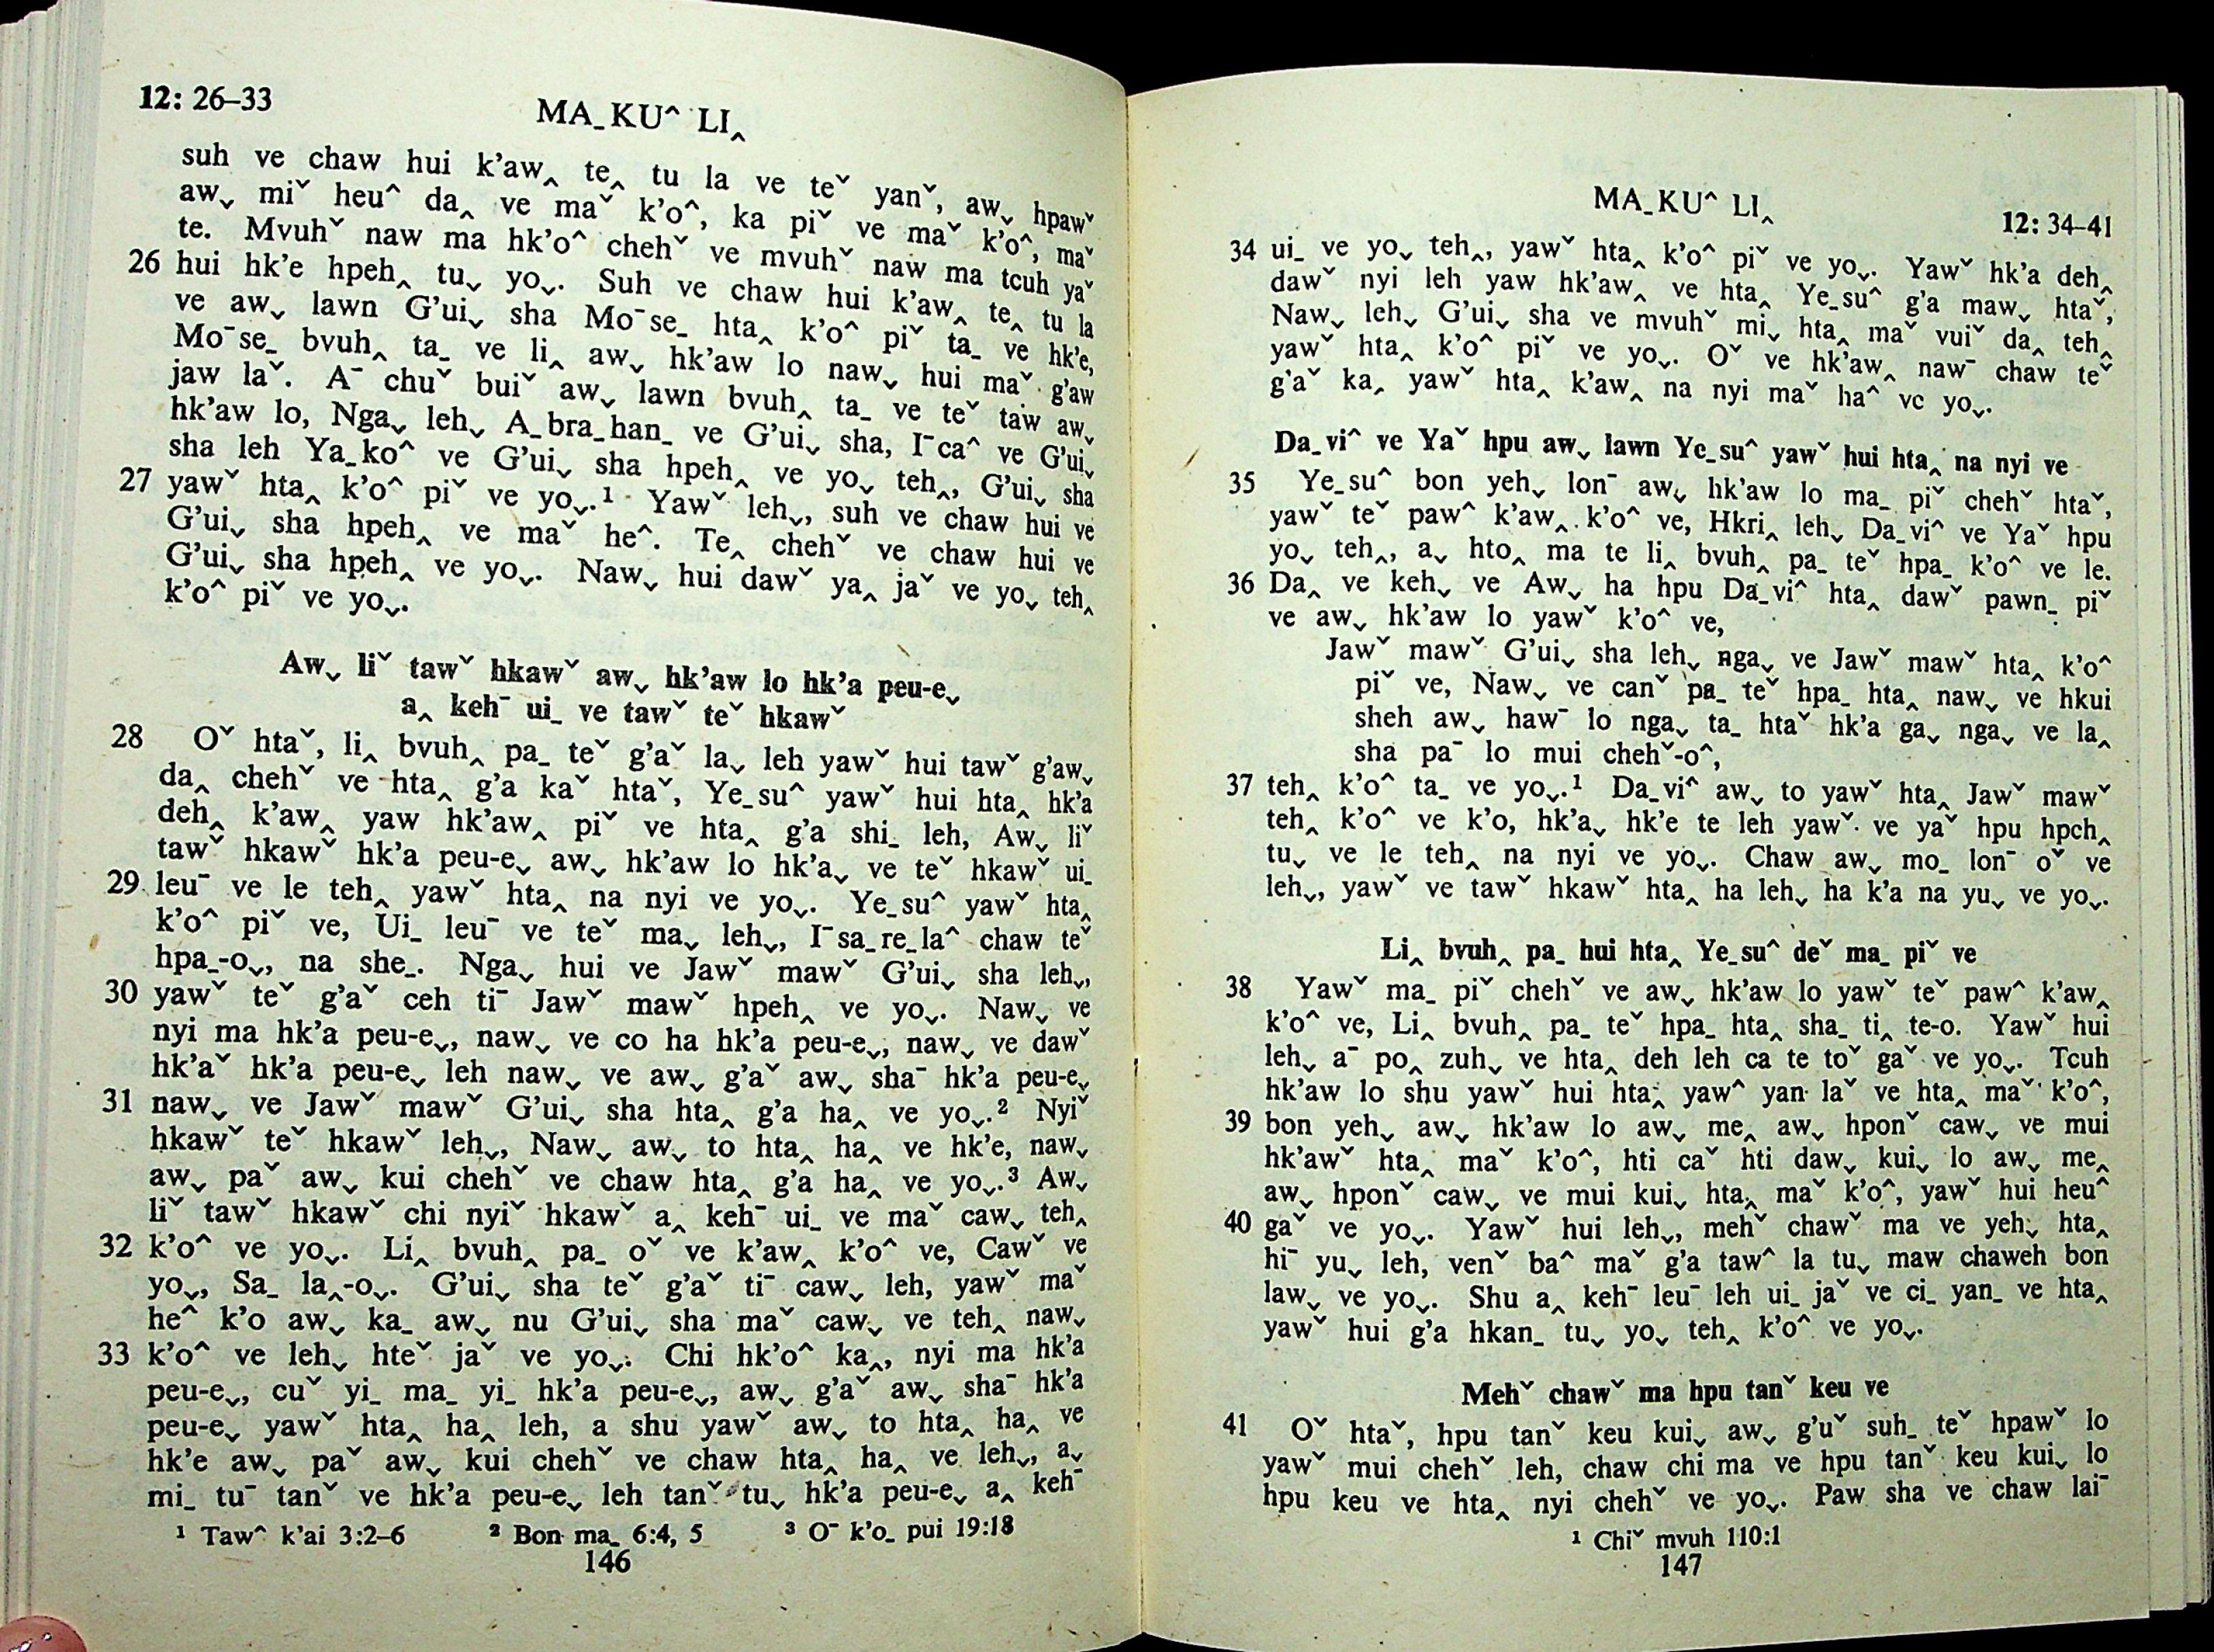 12: 26–33
MA_KU^ LI‸
suh ve chaw hui k'aw‸ te‸ tu la ve teˇ yanˇ, aw⌄ hpawˇ
aw⌄ miˇ heu^ da‸ ve maˇ k'o^, ka piˇ ve maˇ k'o^, maˇ
te. Mvuhˇ naw ma hk'o^ chehˇ ve mvuhˇ naw ma tcuh yaˇ
26 hui hk'e hpeh‸ tu⌄ yo⌄. Suh ve chaw hui k'aw‸ te‸ tu la
ve aw⌄ lawn G'ui⌄ sha Moˉse_ hta‸ k'o^ piˇ ta_ ve hk'e,
Moˉse_ bvuh‸ ta_ ve li‸ aw⌄ hk'aw lo naw⌄ hui maˇ g'aw
jaw laˇ. Aˉ chuˇ buiˇ aw⌄ lawn bvuh‸ ta_ ve teˇ taw aw⌄
hk'aw lo, Nga⌄ leh⌄ A_bra_han_ ve G'ui⌄ sha, Iˉca^ ve G'ui⌄
sha leh Ya_ko^ ve G'ui⌄ sha hpeh‸ ve yo⌄ teh‸, G'ui⌄ sha
27 yawˇ hta‸ k'o^ piˇ ve yo⌄.¹ Yawˇ leh⌄, suh ve chaw hui ve
G'ui⌄ sha hpeh‸ ve maˇ he^. Te‸ chehˇ ve chaw hui ve
G'ui⌄ sha hpeh‸ ve yo⌄. Naw⌄ hui dawˇ ya‸ jaˇ ve yo⌄ teh‸
k'o^ piˇ ve yo⌄.
Aw⌄ liˇ tawˇ hkawˇ aw⌄ hk'aw lo hk'a peu-e⌄
a‸ kehˉ ui_ ve tawˇ teˇ hkawˇ
28 Oˇ htaˇ, li‸ bvuh‸ pa_ teˇ g'aˇ la⌄ leh yawˇ hui tawˇ g'aw⌄
da‸ chehˇ ve hta‸ g'a kaˇ htaˇ, Ye_su^ yawˇ hui hta‸ hk'a
deh‸ k'aw‸ yaw hk'aw‸ piˇ ve hta‸ g'a shi_ leh, Aw⌄ liˇ
tawˇ hkawˇ hk'a peu-e⌄ aw⌄ hk'aw lo hk'a⌄ ve teˇ hkawˇ ui_
29 leuˉ ve le teh‸ yawˇ hta‸ na nyi ve yo⌄. Ye_su^ yawˇ hta‸
k'o^ piˇ ve, Ui_ leuˉ ve teˇ ma⌄ leh⌄, Iˉsa_re_la^ chaw teˇ
hpa_-o⌄, na she_. Nga⌄ hui ve Jawˇ mawˇ G'ui⌄ sha leh⌄,
30 yawˇ teˇ g'aˇ ceh tiˉ Jawˇ mawˇ hpeh‸ ve yo⌄. Naw⌄ ve
nyi ma hk'a peu-e⌄, naw⌄ ve co ha hk'a peu-e⌄, naw⌄ ve dawˇ
hk'aˇ hk'a peu-e⌄ leh naw⌄ ve aw⌄ g'aˇ aw⌄ shaˉ hk'a peu-e⌄
31 naw⌄ ve Jawˇ mawˇ G'ui⌄ sha hta‸ g'a ha‸ ve yo⌄.² Nyiˇ
hkawˇ teˇ hkawˇ leh⌄, Naw⌄ aw⌄ to hta‸ ha‸ ve hk'e, naw⌄
aw⌄ paˇ aw⌄ kui chehˇ ve chaw hta‸ g'a ha‸ ve yo⌄.³ Aw⌄
liˇ tawˇ hkawˇ chi nyiˇ hkawˇ a‸ kehˉ ui_ ve maˇ caw⌄ teh‸
32 k'o^ ve yo⌄. Li‸ bvuh‸ pa_ oˇ ve k'aw‸ k'o^ ve, Cawˇ ve
yo⌄, Sa_ la‸-o⌄. G'ui⌄ sha teˇ g'aˇ tiˉ caw⌄ leh, yawˇ maˇ
he^ k'o aw⌄ ka_ aw⌄ nu G'ui⌄ sha maˇ caw⌄ ve teh‸ naw⌄
33 k'o^ ve leh⌄ hteˇ jaˇ ve yo⌄. Chi hk'o^ ka‸, nyi ma hk'a
peu-e⌄, cuˇ yi_ ma_ yi_ hk'a peu-e⌄, aw⌄ g'aˇ aw⌄ shaˉ hk'a
peu-e⌄ yawˇ hta‸ ha‸ leh, a shu yawˇ aw⌄ to hta‸ ha‸ ve
hk'e aw⌄ paˇ aw⌄ kui chehˇ ve chaw hta‸ ha‸ ve leh⌄, a⌄
mi_ tuˉ tanˇ ve hk'a peu-e⌄ leh tanˇ tu⌄ hk'a peu-e⌄ a‸ kehˉ
¹ Taw^ k'ai 3:2–6 ² Bon ma_ 6:4, 5 ³ Oˉ k'o_ pui 19:18
146
MA_KU^ LI‸
12: 34–41
34 ui_ ve yo⌄ teh‸, yawˇ hta‸ k'o^ piˇ ve yo⌄. Yawˇ hk'a deh‸
dawˇ nyi leh yaw hk'aw‸ ve hta‸ Ye_su^ g'a maw⌄ htaˇ,
Naw⌄ leh⌄ G'ui⌄ sha ve mvuhˇ mi⌄ hta‸ maˇ vuiˇ da‸ teh‸
yawˇ hta‸ k'o^ piˇ ve yo⌄. Oˇ ve hk'aw‸ nawˉ chaw teˇ
g'aˇ ka‸ yawˇ hta‸ k'aw‸ na nyi maˇ ha^ ve yo⌄.
Da_vi^ ve Yaˇ hpu aw⌄ lawn Ye_su^ yawˇ hui hta‸ na nyi ve
35 Ye_su^ bon yeh⌄ lonˉ aw⌄ hk'aw lo ma_ piˇ chehˇ htaˇ,
yawˇ teˇ paw^ k'aw‸ k'o^ ve, Hkri‸ leh⌄ Da_vi^ ve Yaˇ hpu
yo⌄ teh‸, a⌄ hto‸ ma te li‸ bvuh‸ pa_ teˇ hpa_ k'o^ ve le.
36 Da‸ ve keh⌄ ve Aw⌄ ha hpu Da_vi^ hta‸ dawˇ pawn_ piˇ
ve aw⌄ hk'aw lo yawˇ k'o^ ve,
Jawˇ mawˇ G'ui⌄ sha leh⌄ nga⌄ ve Jawˇ mawˇ hta‸ k'o^
piˇ ve, Naw⌄ ve canˇ pa_ teˇ hpa_ hta‸ naw⌄ ve hkui
sheh aw⌄ hawˉ lo nga⌄ ta_ htaˇ hk'a ga⌄ nga⌄ ve la‸
sha paˉ lo mui chehˇ-o^,
37 teh‸ k'o^ ta_ ve yo⌄.¹ Da_vi^ aw⌄ to yawˇ hta‸ Jawˇ mawˇ
teh‸ k'o^ ve k'o, hk'a⌄ hk'e te leh yawˇ ve yaˇ hpu hpeh‸
tu⌄ ve le teh‸ na nyi ve yo⌄. Chaw aw⌄ mo_ lonˉ oˇ ve
leh⌄, yawˇ ve tawˇ hkawˇ hta‸ ha leh⌄ ha k'a na yu⌄ ve yo⌄.
Li‸ bvuh‸ pa_ hui hta‸ Ye_su^ deˇ ma_ piˇ ve
38 Yawˇ ma_ piˇ chehˇ ve aw⌄ hk'aw lo yawˇ teˇ paw^ k'aw‸
k'o^ ve, Li‸ bvuh‸ pa_ teˇ hpa_ hta‸ sha_ ti‸ te-o. Yawˇ hui
leh⌄ aˉ po‸ zuh⌄ ve hta‸ deh leh ca te toˇ gaˇ ve yo⌄. Tcuh
hk'aw lo shu yawˇ hui hta‸ yaw^ yan laˇ ve hta‸ maˇ k'o^,
39 bon yeh⌄ aw⌄ hk'aw lo aw⌄ me‸ aw⌄ hponˇ caw⌄ ve mui
hk'awˇ hta‸ maˇ k'o^, hti caˇ hti daw⌄ kui⌄ lo aw⌄ me‸
aw⌄ hponˇ caw⌄ ve mui kui⌄ hta‸ maˇ k'o^, yawˇ hui heu^
40 gaˇ ve yo⌄. Yawˇ hui leh⌄, mehˇ chawˇ ma ve yeh⌄ hta‸
hiˉ yu⌄ leh, venˇ ba^ maˇ g'a taw^ la tu⌄ maw chaweh bon
law⌄ ve yo⌄. Shu a‸ kehˉ leuˉ leh ui_ jaˇ ve ci_ yan_ ve hta‸
yawˇ hui g'a hkan_ tu⌄ yo⌄ teh‸ k'o^ ve yo⌄.
Mehˇ chawˇ ma hpu tanˇ keu ve
41 Oˇ htaˇ, hpu tanˇ keu kui⌄ aw⌄ g'uˇ suh_ teˇ hpawˇ lo
yawˇ mui chehˇ leh, chaw chi ma ve hpu tanˇ keu kui⌄ lo
hpu keu ve hta‸ nyi chehˇ ve yo⌄. Paw sha ve chaw laiˉ
¹ Chiˇ mvuh 110:1
147